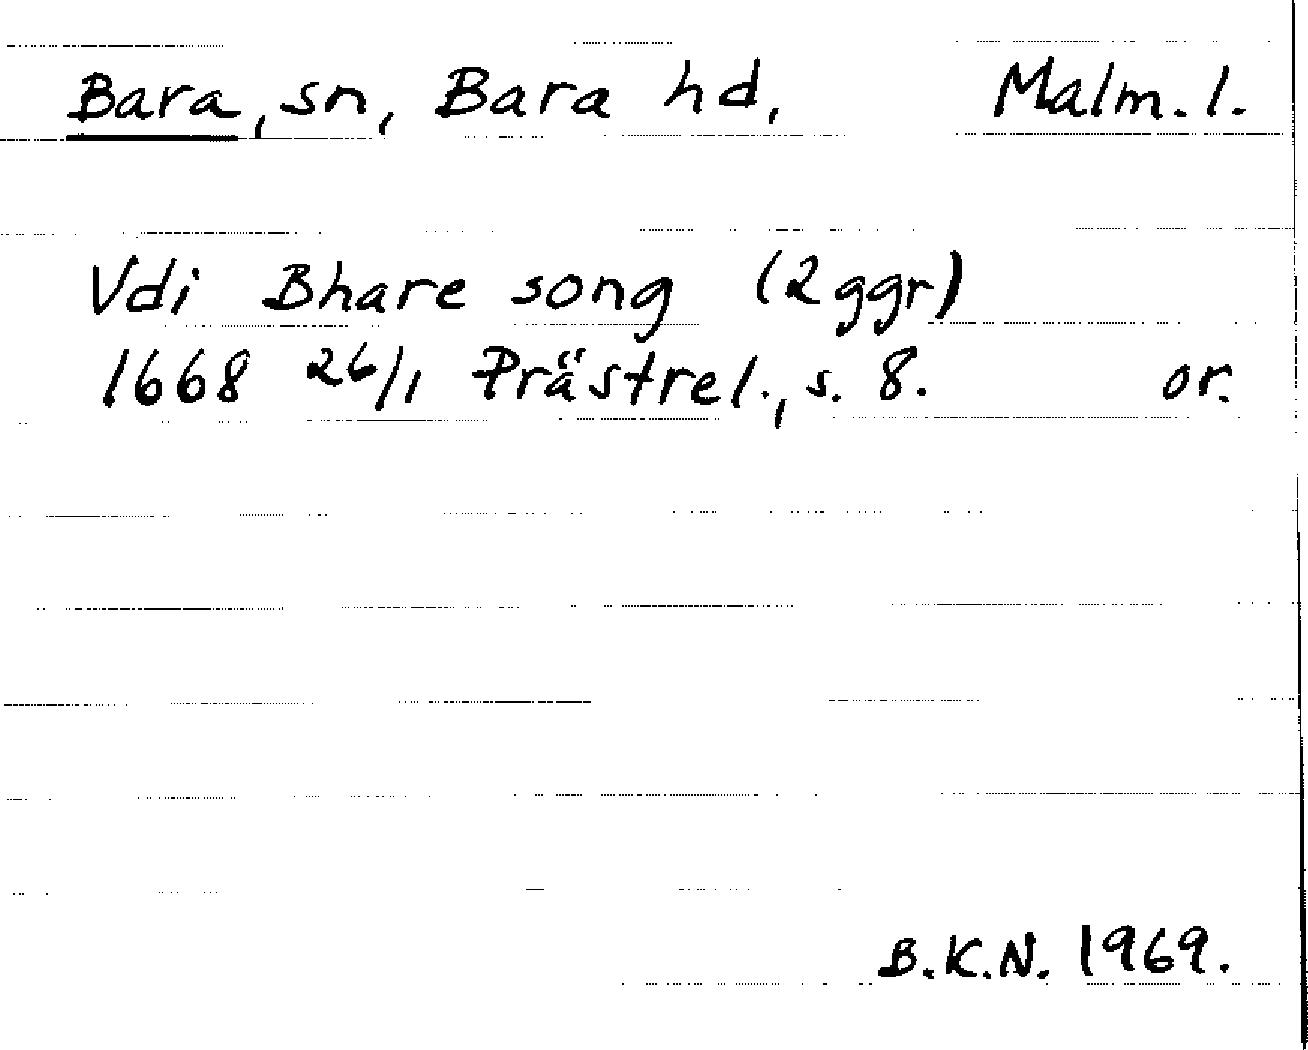 Bara, sn, Bara hd, Malm. l.
Vdi Bhare song (2 ggr)
1668 26/1 Prästrel., s. 8. or.
B.K.N. 1969.